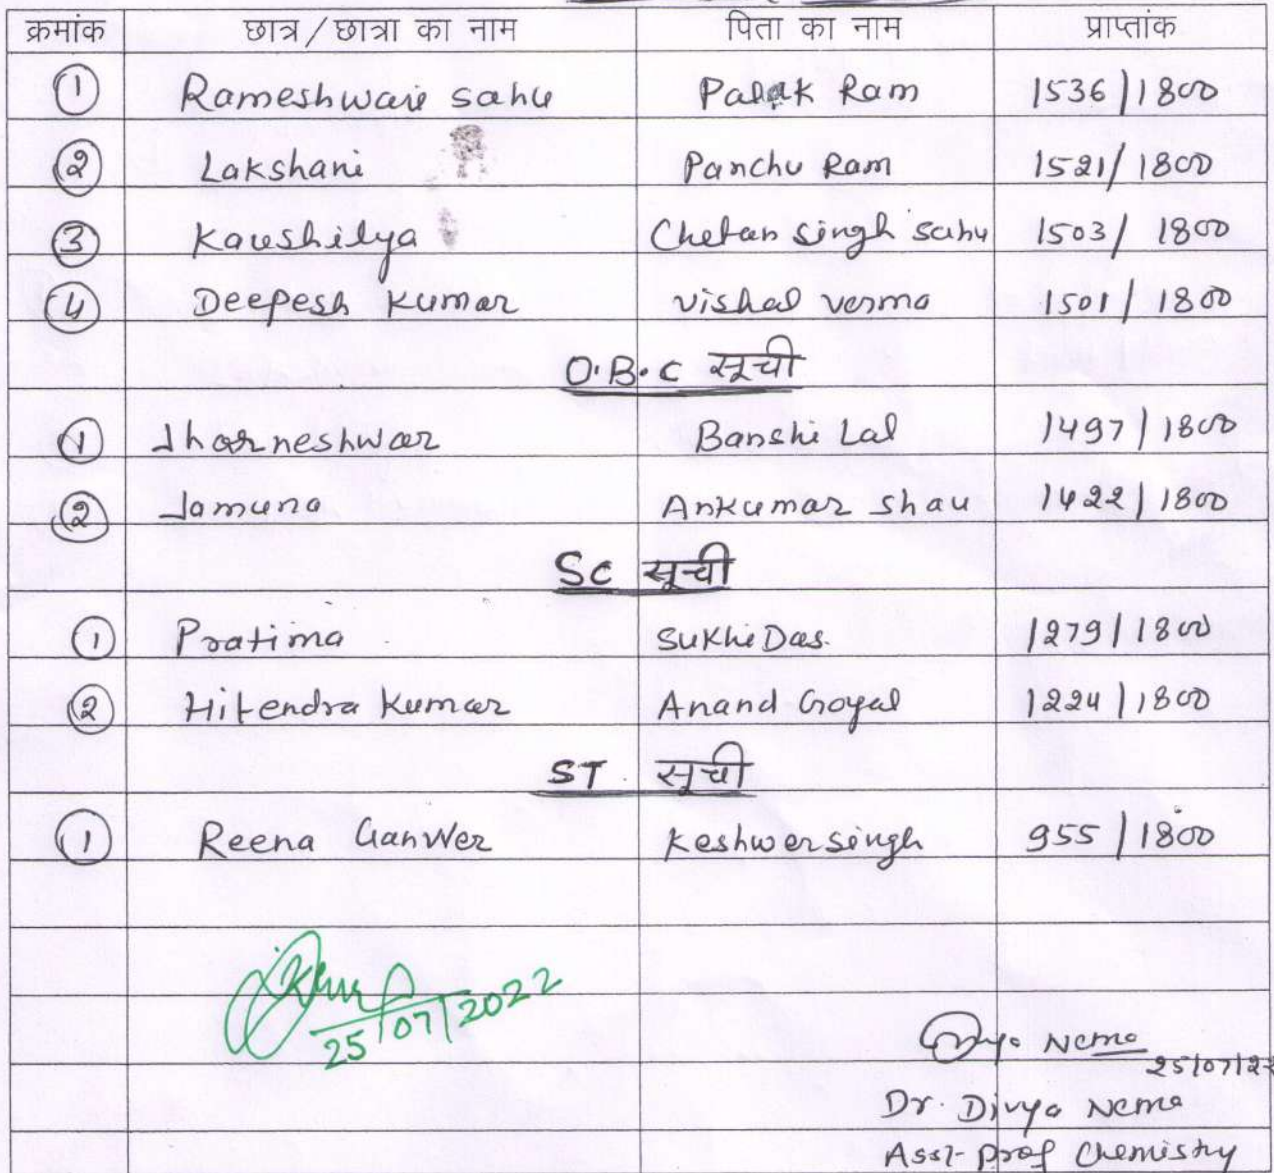 क्रमांक छात्र/छात्रा का नाम पिता का नाम प्राप्तांक
1 Rameshwari sahu Palak Ram 1536/1800
2 Lakshani Panchu Ram 1521/1800
3 Kaushilya Chetan singh sahu 1503/1800
4 Deepesh Kumar vishal verma 1501/1800
O.B.C सूची
1 Jharneshwar Banshi Lal 1497/1800
2 Jamuna Ankumar Shau 1422/1800
SC सूची
1 Pratima Sukhi Das. 1279/1800
2 Hitendra Kumar Anand Goyal 1224/1800
ST. सूची
1 Reena Ganwer Keshwer singh 955/1800
25/07/2022
Divya Nema
25/07/22
Dr. Divya Nema
Asst- prof Chemistry